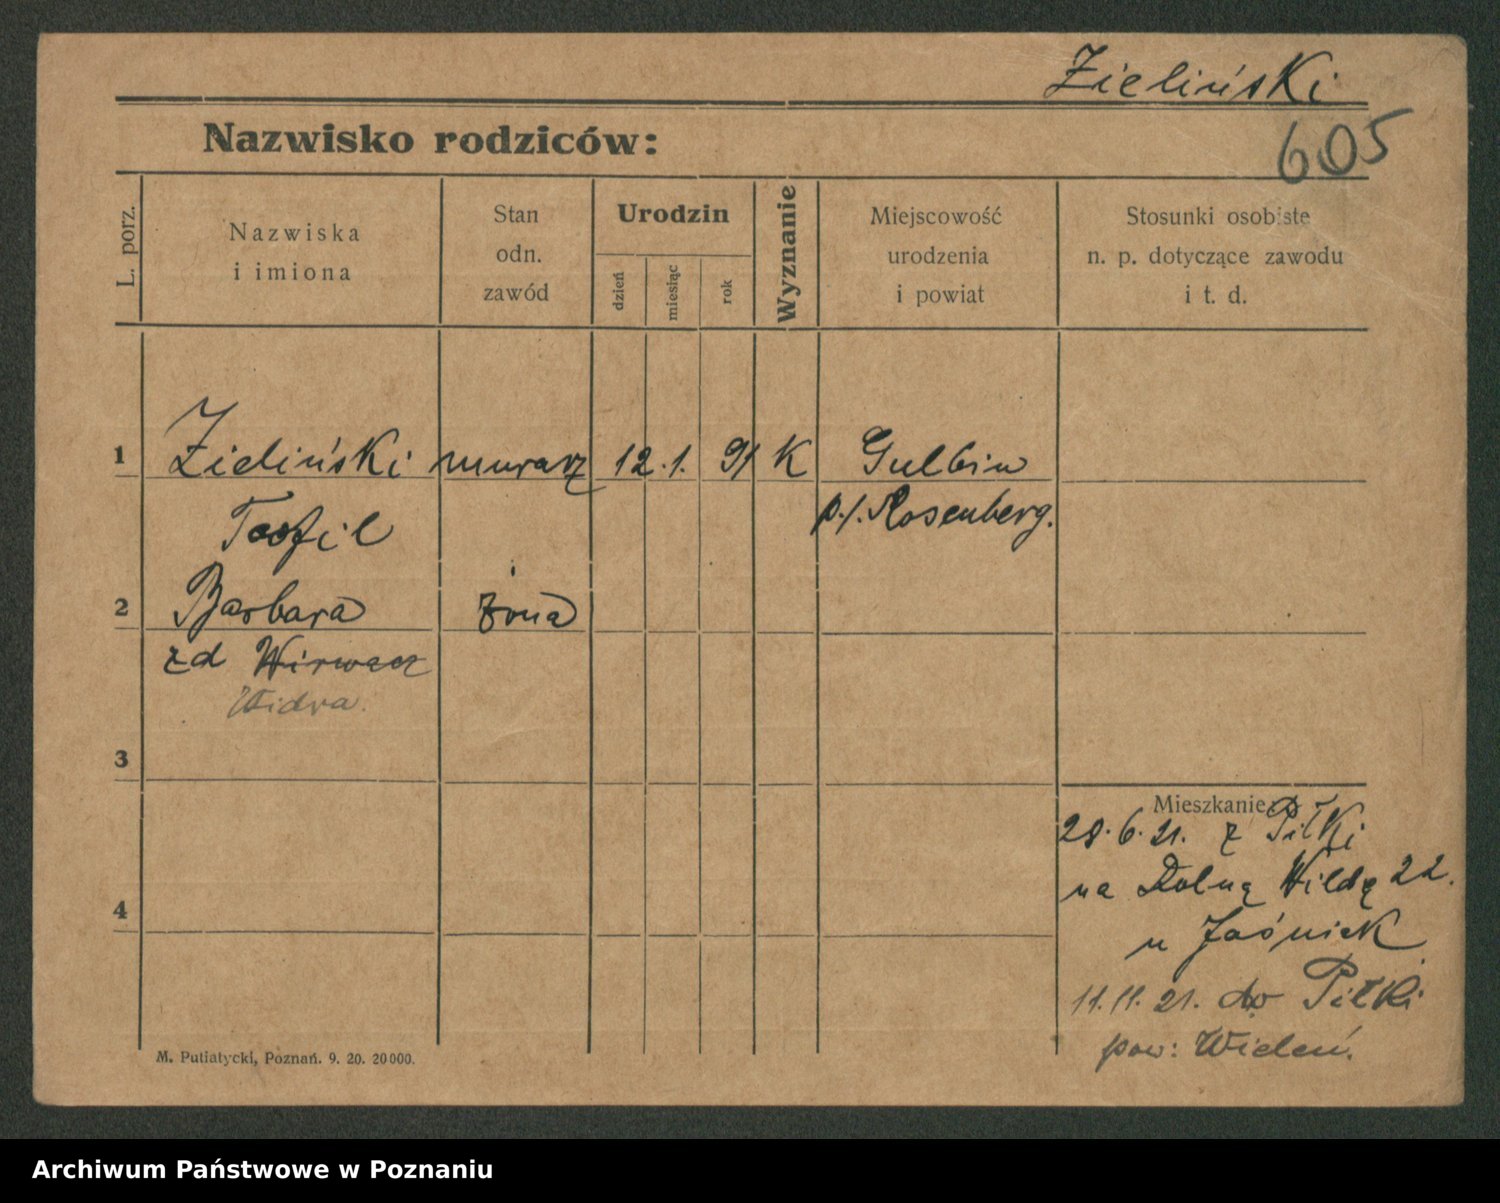 Zieliński
605
Nazwisko rodziców:
L. porz.
Nazwiska
i imiona
Stan
odn.
zawód
Urodzin
dzień
miesiąc
rok
Wyznanie
Miejscowość
urodzenia
i powiat
Stosunki osobiste
n. p. dotyczące zawodu
i t. d.
1 Zieliński murarz 12. 1. 91 K Gulbin
p./. Rosenberg.
Teofil
2 Barbara żona
zd Wirwacz
Widra.
3
Mieszkanie
28. 6. 21. z Piłki
na Dolną Wildę 22.
u Jaśniak
4
11. 11. 21. do Piłki
pow: Wieleń.
M. Putiatycki, Poznań. 9. 20. 20000.
Archiwum Państwowe w Poznaniu